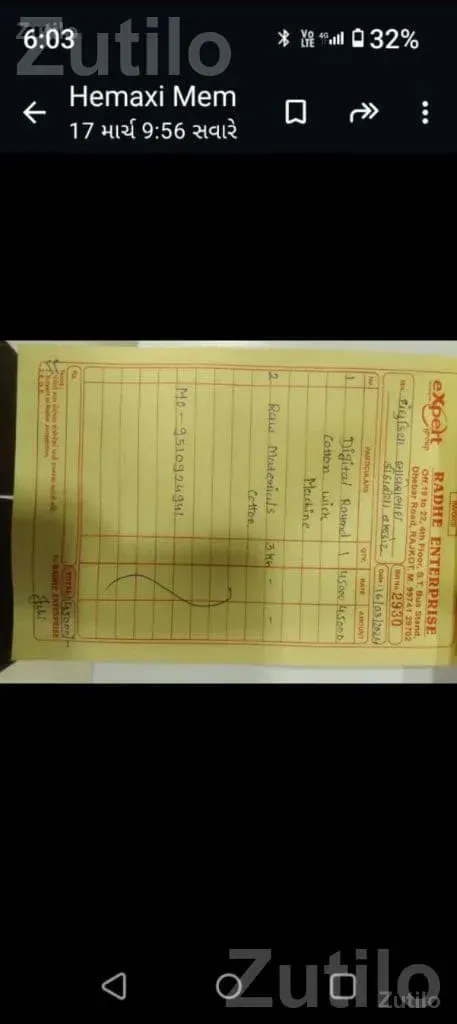 Zutilo
6:03
Vo
LTE
4G
32%
Hemaxi Mem
17 માર્ચ 9:56 સવારે
INVOICE
eXpert
group
RADHE ENTERPRISE
Off. 19 to 22, 4th Floor, S.T. Bus Stand,
Dhebar Road, RAJKOT. M. 99741 29702
Bill No. 2930
Date: 16/03/2024
No.
PARTICULARS
QTY.
RATE
AMOUNT
1 Digital Round 1 45000 45000
Cotton wick
Machine
2 Raw Materials 3 KG - -
Cotton
MO-9510974941
Rs.
TOTAL 45000/-
For RADHE ENTERPRISE
Zutilo
Zutilo